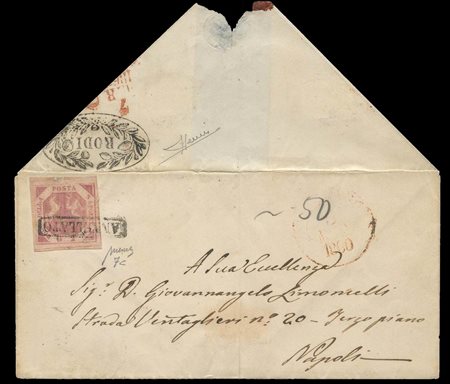 RODI
POSTA
ANNULLATO
7c
~ 50
1860
A Sua Eccellenza
Sig.r D. Giovannangelo Limoncelli
Strada Ventaglieri n.o 20 - Terzo piano
Napoli